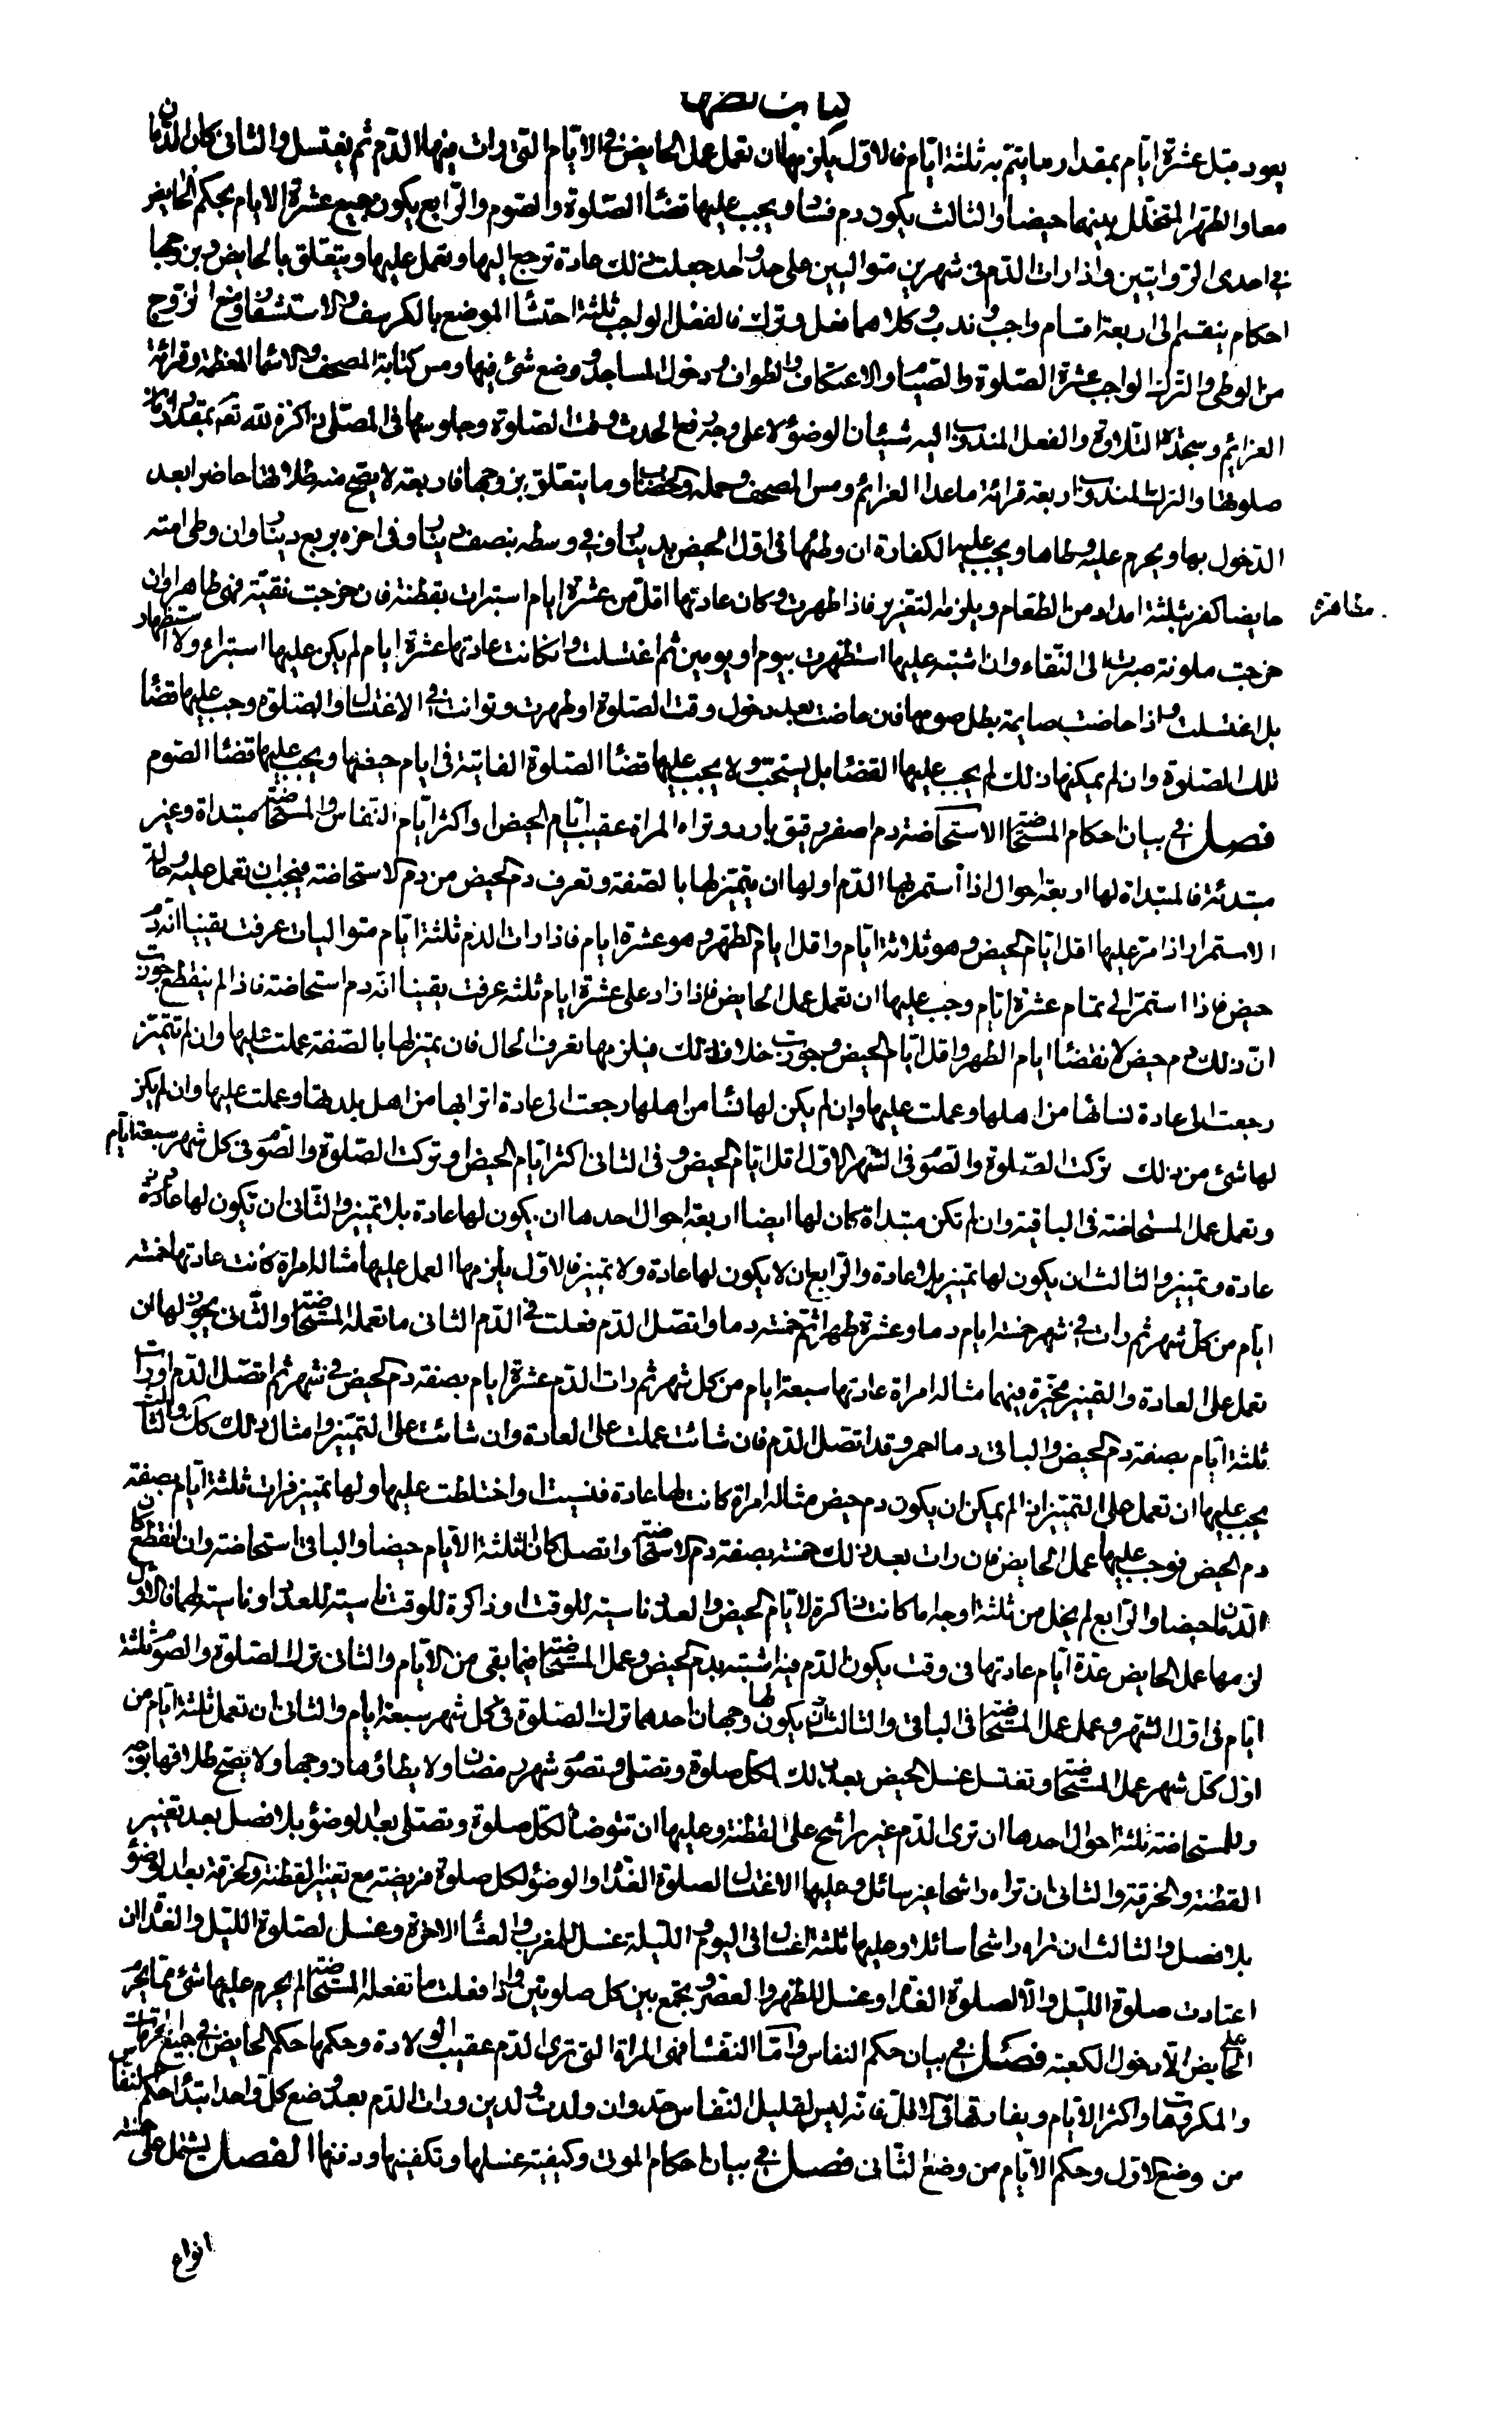 كتاب الطهارة
يعود قبل عشرة ايام بمقدار ما يتم به ثلثة ايام فالاول يلزمها ان تعمل عمل الحايض فى الايام التى رات فيها الدم ثم يغتسل والثانى كان الدمان
معا والطهر المتخلل بينهما حيضا والثالث يكون دم فساد ويجب عليها قضاء الصلوة والصوم والرابع يكون جميع عشرة الايام بحكم الحايض
فى احدى الروايتين واذا رات الدم فى شهرين متواليين على حد واحد جعلت ذلك عادة ترجع اليها وتعمل عليها ويتعلق بالحايض وبزوجها
احكام ينقسم الى اربعة اقسام واجب وندب وكلاهما فعل وترك فالفعل الواجب ثلثة احتشاء الموضع بالكرسف والاستثفار ومنع الزوج
من الوطى والترك الواجب عشرة الصلوة والصيام والاعتكاف والطواف ودخول المساجد ووضع شئ فيها ومس كتابة المصحف والاسماء المعظمة وقرائة
العزائم وسجدة التلاوة والفعل المندوب اليه شيئان الوضوء لا على وجه رفع الحدث وقت الصلوة وجلوسها فى المصلى ذاكرة لله تعم بمقدار زمان
صلوتها والترك المندوب اربعة قرائة ماعدا العزائم ومس المصحف وحمله والخضاب وما يتعلق بزوجها فاربعة لا يصح منه طلاقها حاضرا بعد
الدخول بها ويحرم عليه وطاها ويجب عليه الكفارة ان وطئها فى اول الحيض بدينار وفى وسطه بنصف دينار وفى اخره بربع دينار وان وطى امته
حايضا كفر بثلثة امداد من الطعام ويلزمه التعزير فاذا طهرت وكان عادتها اقل من عشرة ايام استبرات بقطنة فان خرجت نقية فهى طاهر وان
خرجت ملونة صبرت الى النقاء وان اشتبه عليها استظهرت بيوم او يومين ثم اغتسلت وان كانت عادتها عشرة ايام لم يكن عليها استبراء ولا استظهار
بل اغتسلت واذا حاضت صايمة بطل صومها فان حاضت بعد دخول وقت الصلوة او طهرت وتوانت فى الاغتسال والصلوة وجب عليها قضاء
تلك الصلوة وان لم يمكنها ذلك لم يجب عليها القضاء بل يستحب ولا يجب عليها قضاء الصلوة الفايتة فى ايام حيضها ويجب عليها قضاء الصوم
فصل فى بيان احكام المستحاضة الاستحاضة دم اصفر رقيق بارد وتراه المراة عقيب ايام الحيض او اكثر ايام النفاس والمستحاضة مبتداة وغير
مبتدئة فالمبتداة لها اربعة احوال اذا استمر بها الدم اولها ان يتميز لها بالصفة وتعرف دم الحيض من دم الاستحاضة فيجب ان تعمل عليه وحالة
الاستمرار اذا مر عليها اقل ايام الحيض وهو ثلاثة ايام واقل ايام الطهر وهو عشرة ايام فاذا رات الدم ثلثة ايام متواليات عرفت يقينا انه دم
حيض فاذا استمر الى تمام عشرة ايام وجب عليها ان تعمل عمل الحايض فاذا زاد على عشرة ايام ثلثة عرفت يقينا انه دم استحاضة فاذا لم ينقطع جوزت
ان ذلك دم حيض لانقضاء ايام الطهر واقل ايام الحيض وجوزت خلاف ذلك فيلزمها تعرف الحال فان يتميز لها بالصفة عملت عليها وان لم تتميز
رجعت الى عادة نسائها من اهلها وعملت عليها وان لم يكن لها نساء من اهلها رجعت الى عادة اترابها من اهل بلدتها وعملت عليها وان لم يكن
لها شئ من ذلك تركت الصلوة والصوم فى الشهر الاول اقل ايام الحيض وفى الثانى اكثر ايام الحيض او تركت الصلوة والصوم فى كل شهر سبعة ايام
وتعمل عمل المستحاضة فى الباقية وان لم تكن مبتداة كان لها ايضا اربعة احوال احدها ان يكون لها عادة بلا تميز والثانى ان تكون لها
عادة وتميز والثالث ان يكون لها تميز بلا عادة والرابع ان لا يكون لها عادة ولا تميز فالاول يلزمها العمل عليها مثاله امراة كانت عادتها خمسة
ايام من كل شهر ثم رات فى شهر خمسة ايام دما وعشرة طهرا ثم خمسة دما واتصل الدم فعلت فى الدم الثانى ما تعمله المستحاضة والثانى يجوز لها ان
تعمل على العادة والتميز مخيرة فيهما مثاله امراة عادتها سبعة ايام من كل شهر ثم رات الدم عشرة ايام بصفة دم الحيض فى شهر ثم اتصل الدم او رات
ثلثة ايام بصفة دم الحيض والباقى دما احمر وقد اتصل الدم فان شائت عملت على العادة وان شائت على التميز وامثال ذلك كك والثالث
يجب عليها ان تعمل على التميز اذا لم يمكن ان يكون دم حيض مثاله امراة كانت لها عادة فنسيت او اختلطت عليها ولها تميز فرات ثلثة ايام بصفة
دم الحيض فوجب عليها عمل الحايض فان رات بعد ذلك خمسة بصفة دم الاستحاضة واتصل كان الثلثة الايام حيضا والباقى استحاضة وان انقطع كان
الدمان حيضا والرابع لم يخل من ثلثة اوجه اما كانت ذاكرة لايام الحيض والعدد ناسيه للوقت او ذاكرة للوقت ناسية للعدد او ناسية لهما فالاول
لزمها عمل الحايض عدة ايام عادتها فى وقت يكون الدم فيه اشبه بدم الحيض وعمل المستحاضة فيما بقى من الايام والثانى ترك الصلوة والصوم ثلثة
ايام فى اول الشهر وعمل عمل المستحاضة فى الباقى والثالث ان يكون لها وجهان احدهما ترك الصلوة فى كل شهر سبعة ايام والثانى ان تعمل ثلثة ايام من
اول كل شهر عمل المستحاضة وتغتسل غسل الحيض بعد ذلك لكل صلوة وتصلى وتصوم شهر رمضان ولا يطاؤها زوجها ولا يصح طلاقها بوجه
وللمستحاضة ثلثة احوال احدها ان ترى الدم غير راشح على القطنة وعليها ان تتوضأ لكل صلوة وتصلى بعد الوضوء بلا فصل بعد تغيير
القطنة والخرقة والثانى ان تراه راشحا غير سائل وعليها الاغتسال لصلوة الغداة والوضوء لكل صلوة فريضة مع تغيير القطنة والخرقة بعد الوضوء
بلا فصل والثالث ان تراه راشحا سائلا وعليها ثلثة اغسال فى اليوم والليلة غسل للمغرب والعشاء الاخرة وغسل لصلوة الليل والغداة ان
اعتادت صلوة الليل والا لصلوة الغداة وغسل للظهر والعصر وتجمع بين كل صلوتين واذا فعلت ما تفعله المستحاضة لم يحرم عليها شئ مما يحرم
على الحايض الا دخول الكعبة فصل فى بيان حكم النفاس واما النفساء فهى المراة التى ترى الدم عقيب الولادة وحكمها حكم الحايض فى جميع المحرمات
والمكروهات واكثر الايام ويفارقها فى الاقل فانه ليس لقليل النفاس حد وان ولدت ولدين ورات الدم بعد وضع كل واحد ابتدا حكم النفاس
من وضع الاول وحكم الايام من وضع الثانى فصل فى بيان احكام الموت وكيفية غسلها وتكفينها ودفنها الفصل يشتمل على خمسة
انواع